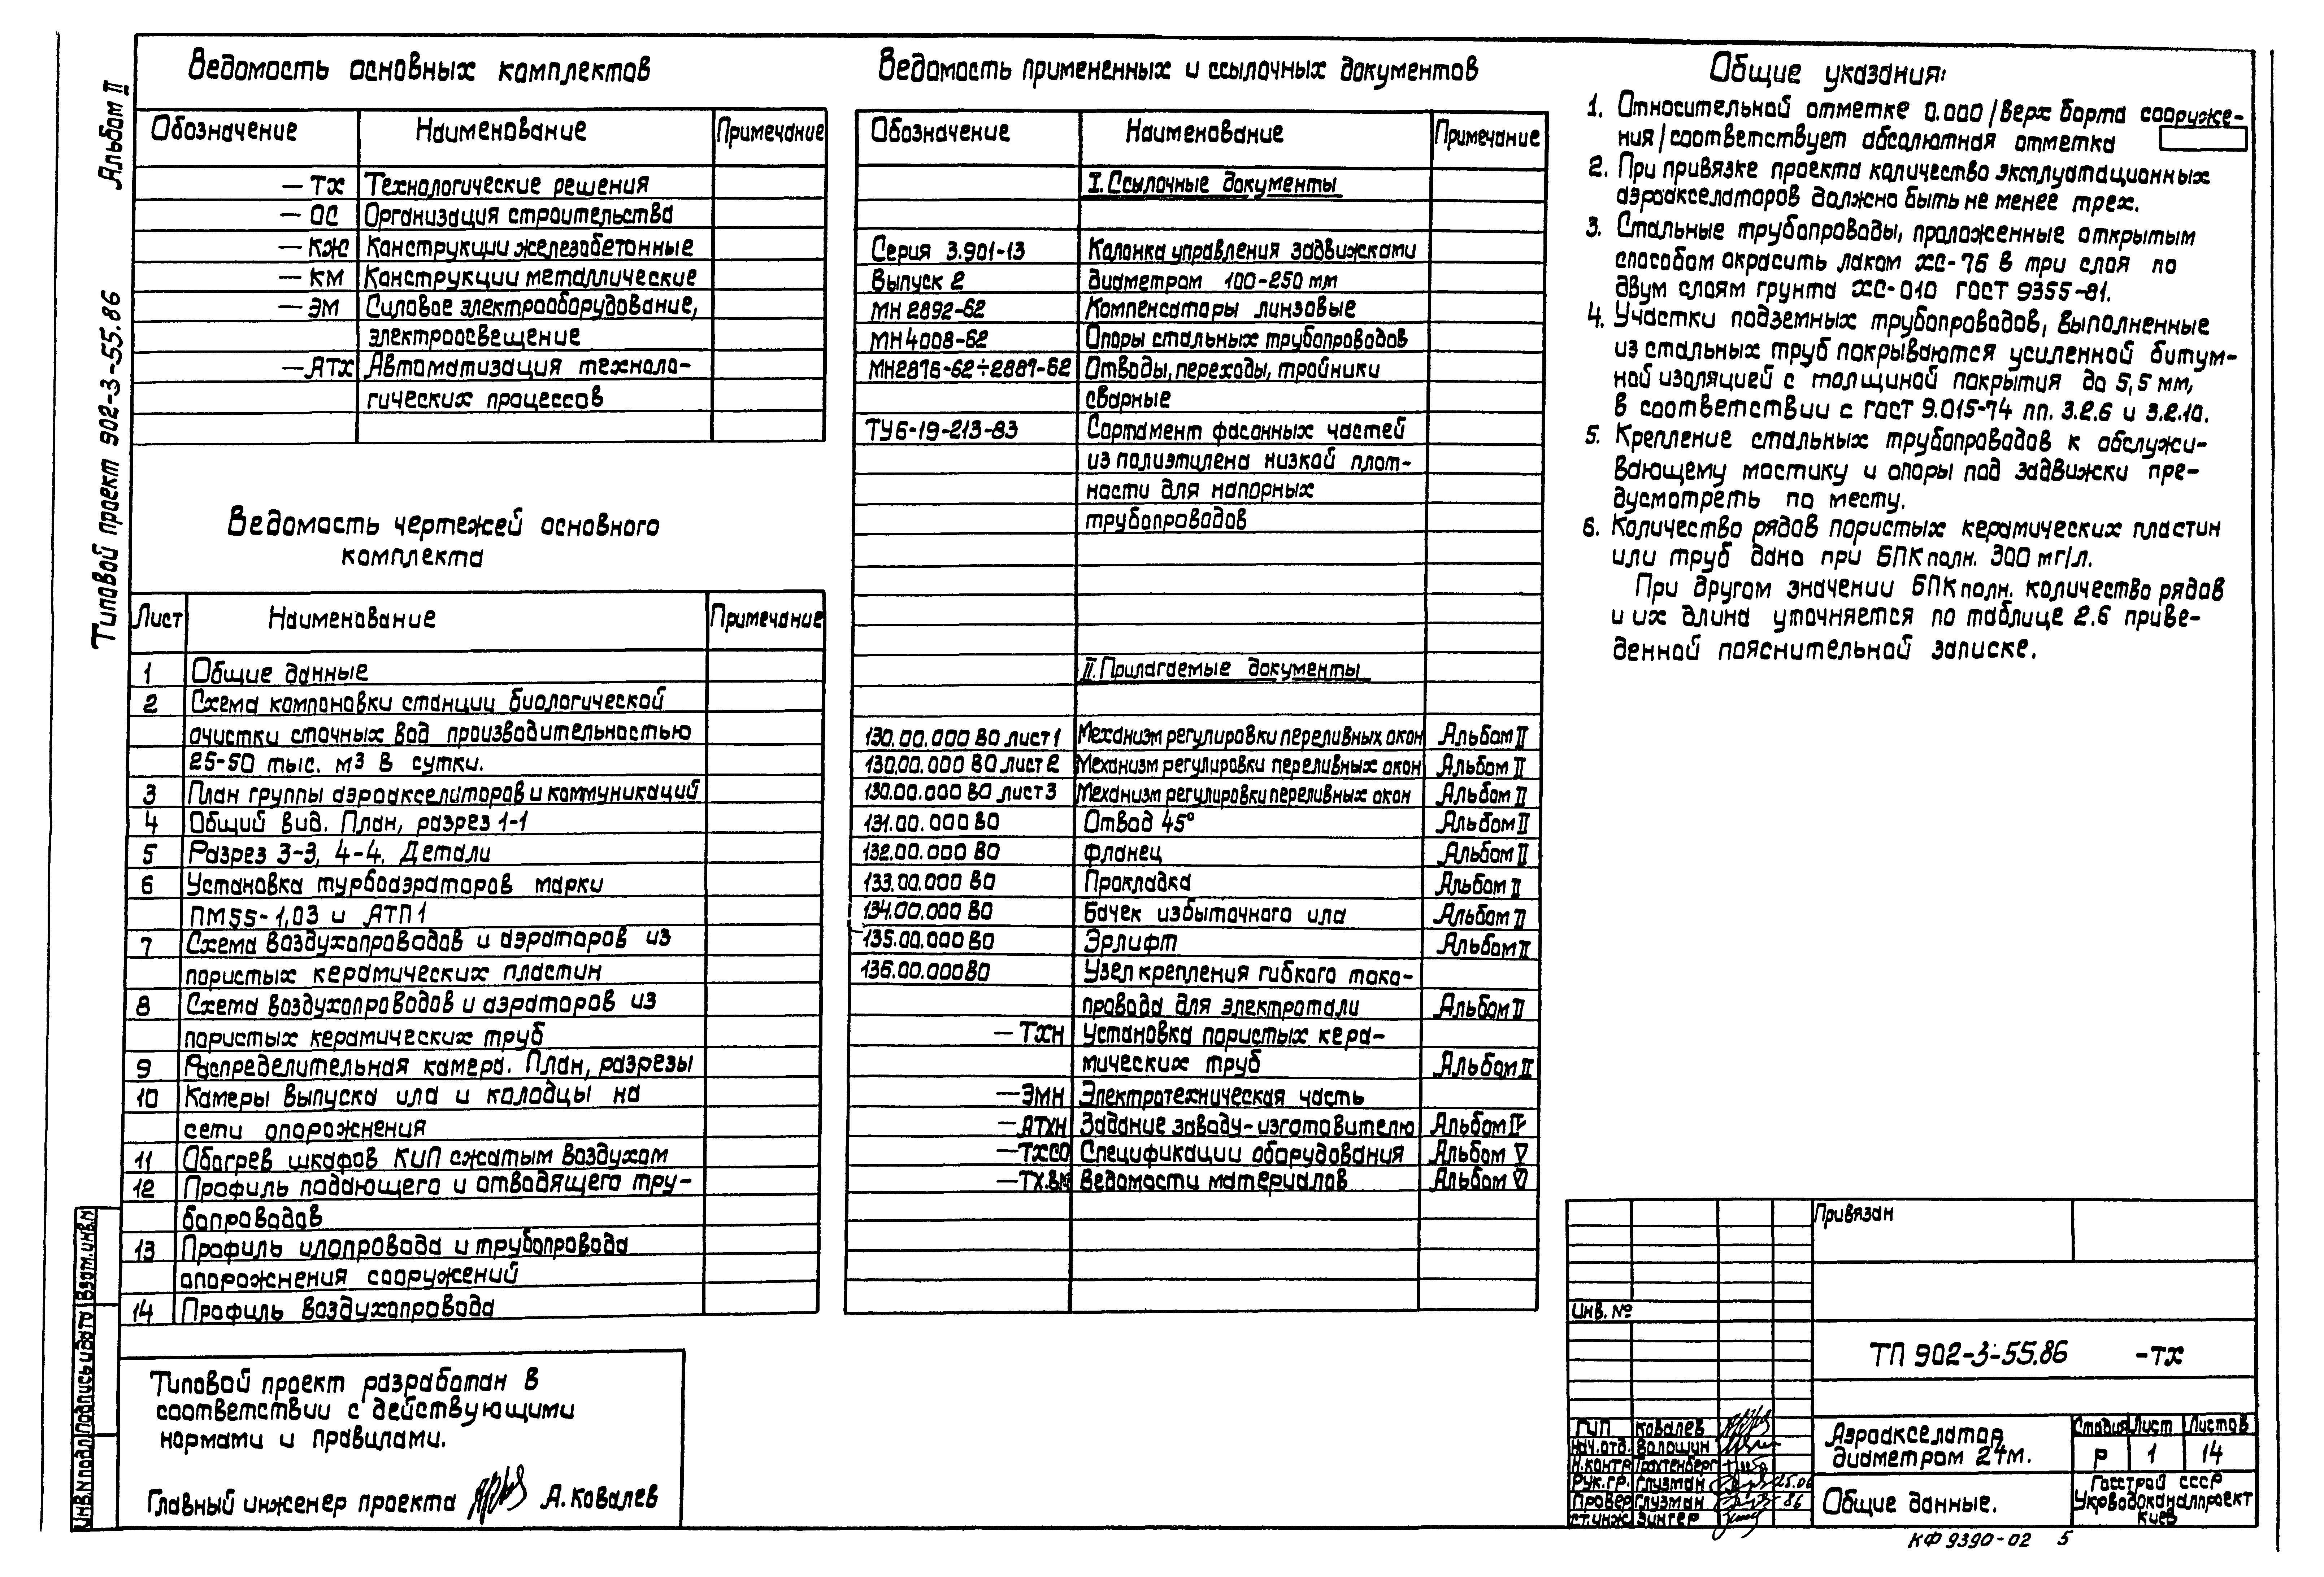 Альбом II
Типовой проект 902-3-55.86
Ведомость основных комплектов
Обозначение Наименование Примечание
—ТХ Технологические решения
—ОС Организация строительства
—КЖ Конструкции железобетонные
—КМ Конструкции металлические
—ЭМ Силовое электрооборудование,
электроосвещение
—АТХ Автоматизация техноло-
гических процессов
Ведомость чертежей основного
комплекта
Лист Наименование Примечание
1 Общие данные
2 Схема компоновки станции биологической
очистки сточных вод производительностью
25-50 тыс. м3 в сутки.
3 План группы аэроакселиторов и коммуникаций
4 Общий вид. План, разрез 1-1
5 Разрез 3-3, 4-4. Детали
6 Установка турбоаэраторов марки
ПМ55-1,03 и АТП1
7 Схема воздухопроводов и аэраторов из
пористых керамических пластин
8 Схема воздухопроводов и аэраторов из
пористых керамических труб
9 Распределительная камера. План, разрезы
10 Камеры выпуска ила и колодцы на
сети опорожнения
11 Обогрев шкафов КИП сжатым воздухом
12 Профиль подающего и отводящего тру-
бопроводов
13 Профиль илопровода и трубопровода
опорожнения сооружений
14 Профиль воздухопровода
Типовой проект разработан в
соответствии с действующими
нормами и правилами.
Главный инженер проекта А. Ковалев
Инв.№подл Подпись и дата Взам.инв.№
Ведомость примененных и ссылочных документов
Обозначение Наименование Примечание
I. Ссылочные документы
Серия 3.901-13 Колонка управления задвижками
Выпуск 2 диаметром 100-250 мм
МН 2892-62 Компенсаторы линзовые
МН4008-62 Опоры стальных трубопроводов
МН2876-62÷2887-62 Отводы, переходы, тройники
сварные
ТУ6-19-213-83 Сортамент фасонных частей
из полиэтилена низкой плот-
ности для напорных
трубопроводов
II. Прилагаемые документы
130.00.000 ВО лист 1 Механизм регулировки переливных окон Альбом II
130.00.000 ВО лист 2 Механизм регулировки переливных окон Альбом II
130.00.000 ВО лист 3 Механизм регулировки переливных окон Альбом II
131.00.000 ВО Отвод 45° Альбом II
132.00.000 ВО Фланец Альбом II
133.00.000 ВО Прокладка Альбом II
134.00.000 ВО Бачек избыточного ила Альбом II
135.00.000 ВО Эрлифт Альбом II
136.00.000ВО Узел крепления гибкого токо-
провода для электротали Альбом II
—ТХН Установка пористых кера-
мических труб Альбом II
—ЭМН Электротехническая часть
—АТХН Задание заводу-изготовителю Альбом IV
—ТХСО Спецификации оборудования Альбом V
—ТХ.ВМ Ведомости материалов Альбом VI
Общие указания:
1. Относительной отметке 0.000 /верх борта сооруже-
ния/ соответствует абсолютная отметка
2. При привязке проекта количество эксплуатационных
аэроакселаторов должно быть не менее трех.
3. Стальные трубопроводы, проложенные открытым
способом окрасить лаком ХС-76 в три слоя по
двум слоям грунта ХС-010 ГОСТ 9355-81.
4. Участки подземных трубопроводов, выполненные
из стальных труб покрываются усиленной битум-
ной изоляцией с толщиной покрытия до 5,5 мм,
в соответствии с ГОСТ 9.015-74 пп. 3.2.6 и 3.2.10.
5. Крепление стальных трубопроводов к обслужи-
вающему мостику и опоры под задвижки пре-
дусмотреть по месту.
6. Количество рядов пористых керамических пластин
или труб дано при БПКполн. 300 мг/л.
При другом значении БПКполн. количество рядов
и их длина уточняется по таблице 2.6 приве-
денной пояснительной записке.
Привязан
Инв. №
ТП 902-3-55.86 -ТХ
ГИП Ковалев
Нач.отд. Волошин
Н.контр Трахтенберг
Рук.гр. Глузман 25.06
Провер Глузман 86
Ст.инж Зингер
Аэроакселатор
диаметром 24м.
Стадия Лист Листов
Р 1 14
Общие данные.
Госстрой СССР
Укрводоканалпроект
Киев
КФ 9390-02 5